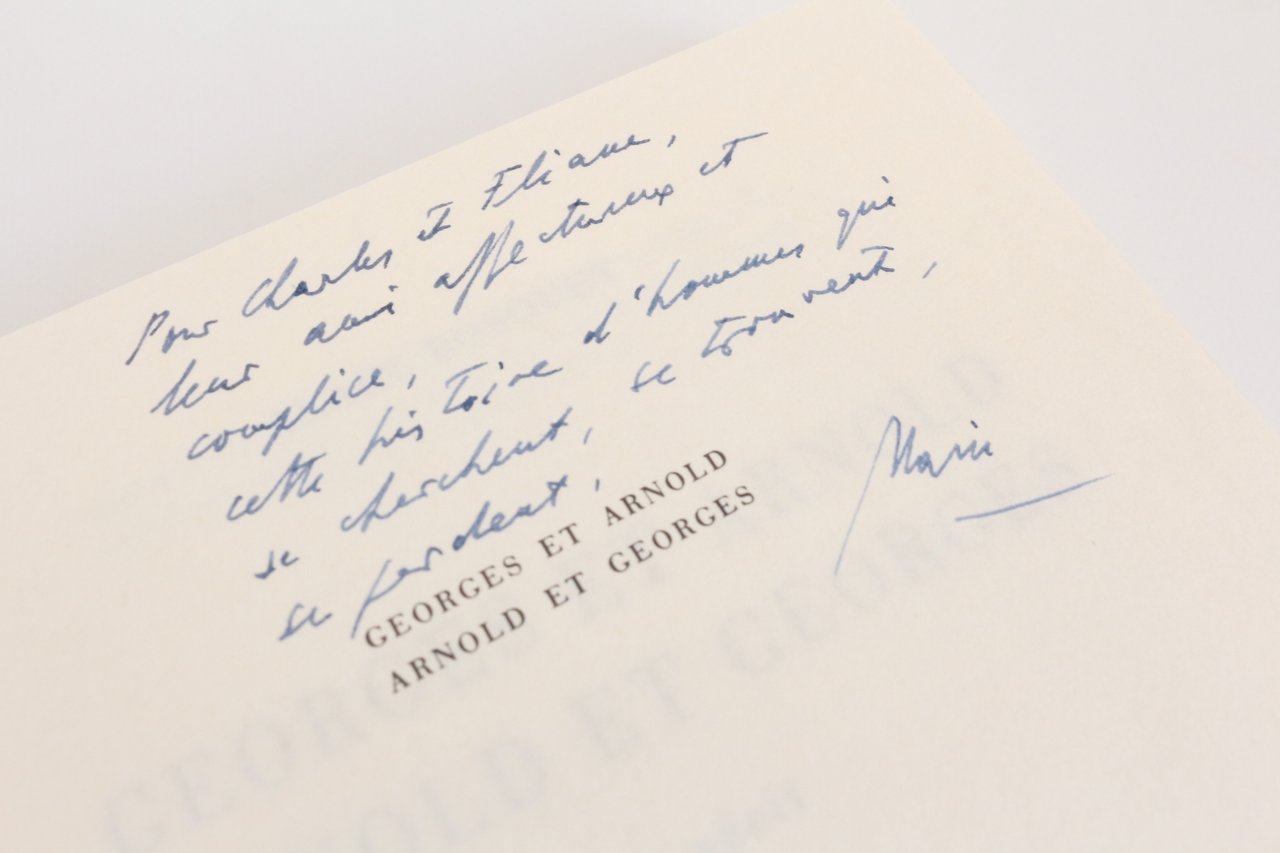 Pour Charles et Eliane,
leur ami affectueux et
complice,
cette histoire d'hommes qui
se cherchent, se trouvent,
se perdent,
GEORGES ET ARNOLD
ARNOLD ET GEORGES
GEORGES ET ARNOLD
ARNOLD ET GEORGES